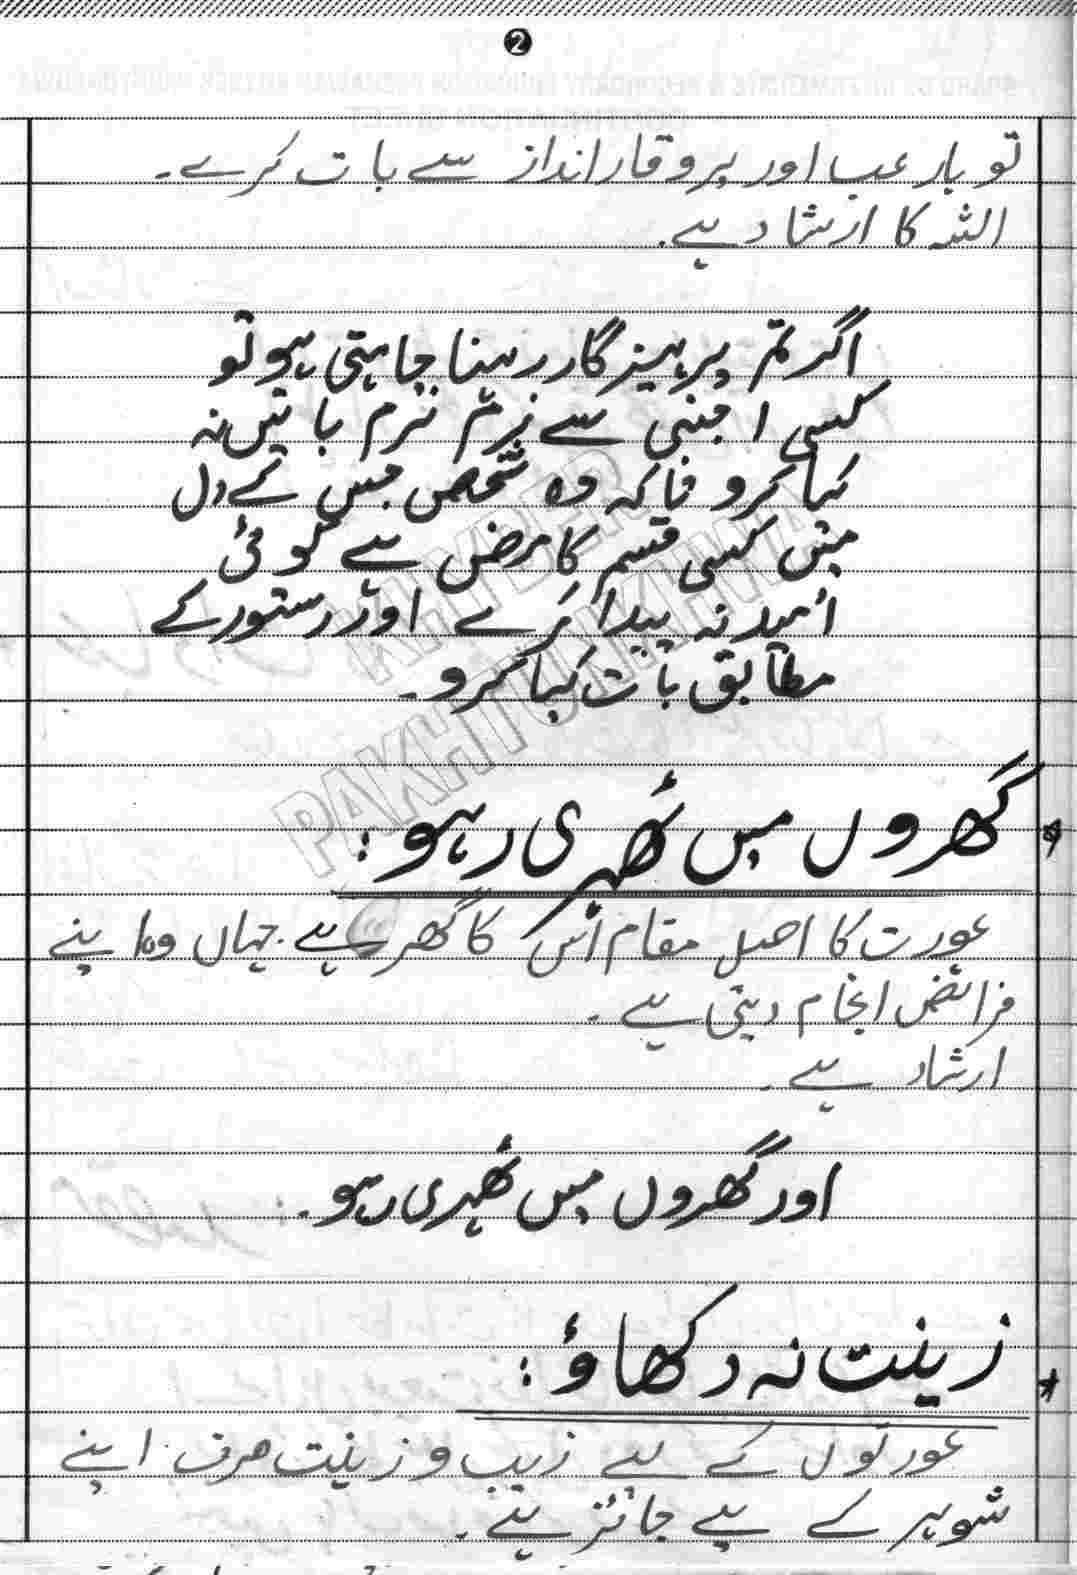 2
تو بارعب اور پروقار انداز سے بات کرے۔
اللہ کا ارشاد ہے۔
اگر تم پرہیز گار رہنا چاہتی ہو تو
کسی اجنبی سے نرم نرم باتیں نہ
کیا کرو تاکہ وہ شخص جس کے دل
میں کسی قسم کا مرض ہے کوئی
اُمید نہ پیدا کرے اور دستور کے
مطابق بات کیا کرو۔
KHYBER
PAKHTUNKHWA
* گھروں میں ٹھہری رہو:
عورت کا اصل مقام اُس کا گھر ہے جہاں وہ اپنے
فرائض انجام دیتی ہے۔
ارشاد ہے۔
اور گھروں میں ٹھہری رہو۔
* زینت نہ دکھاؤ:
عورتوں کے لیے زیب و زینت صرف اپنے
شوہر کے لیے جائز ہے۔